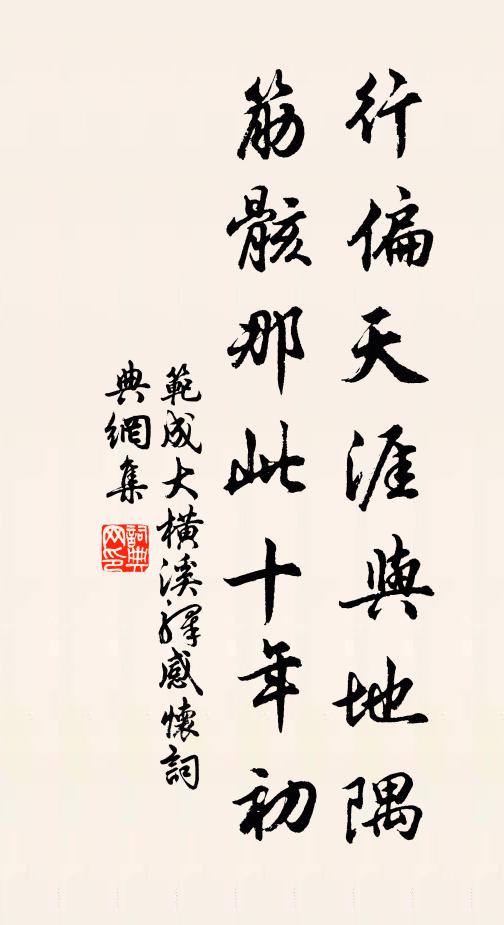 行偏天涯與地隅
筋骸那此十年初
範成大橫溪驛感懷詞
典網集
詞典
网印